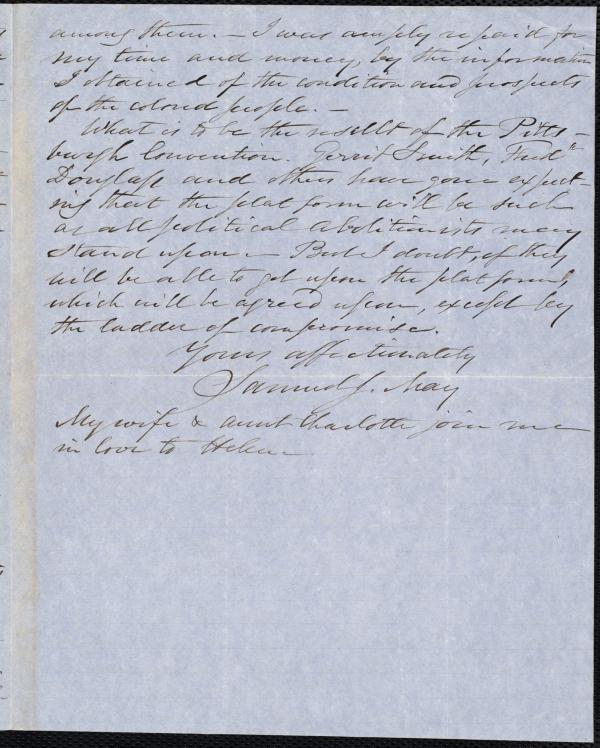 among them. — I was amply repaid for
my time and money, by the information
I obtained of the condition and prospects
of the colored people. —
What is to be the result of the Pitts-
burgh Convention. Gerrit Smith, Fredk
Douglass and others have gone expect-
ing that the platform will be such
as all political abolitionists may
stand upon — But I doubt, if they
will be able to get upon the platform,
which will be agreed upon, except by
the ladder of compromise.
Yours affectionately
Samuel J. May
My wife & aunt Charlotte join me
in love to Helen —